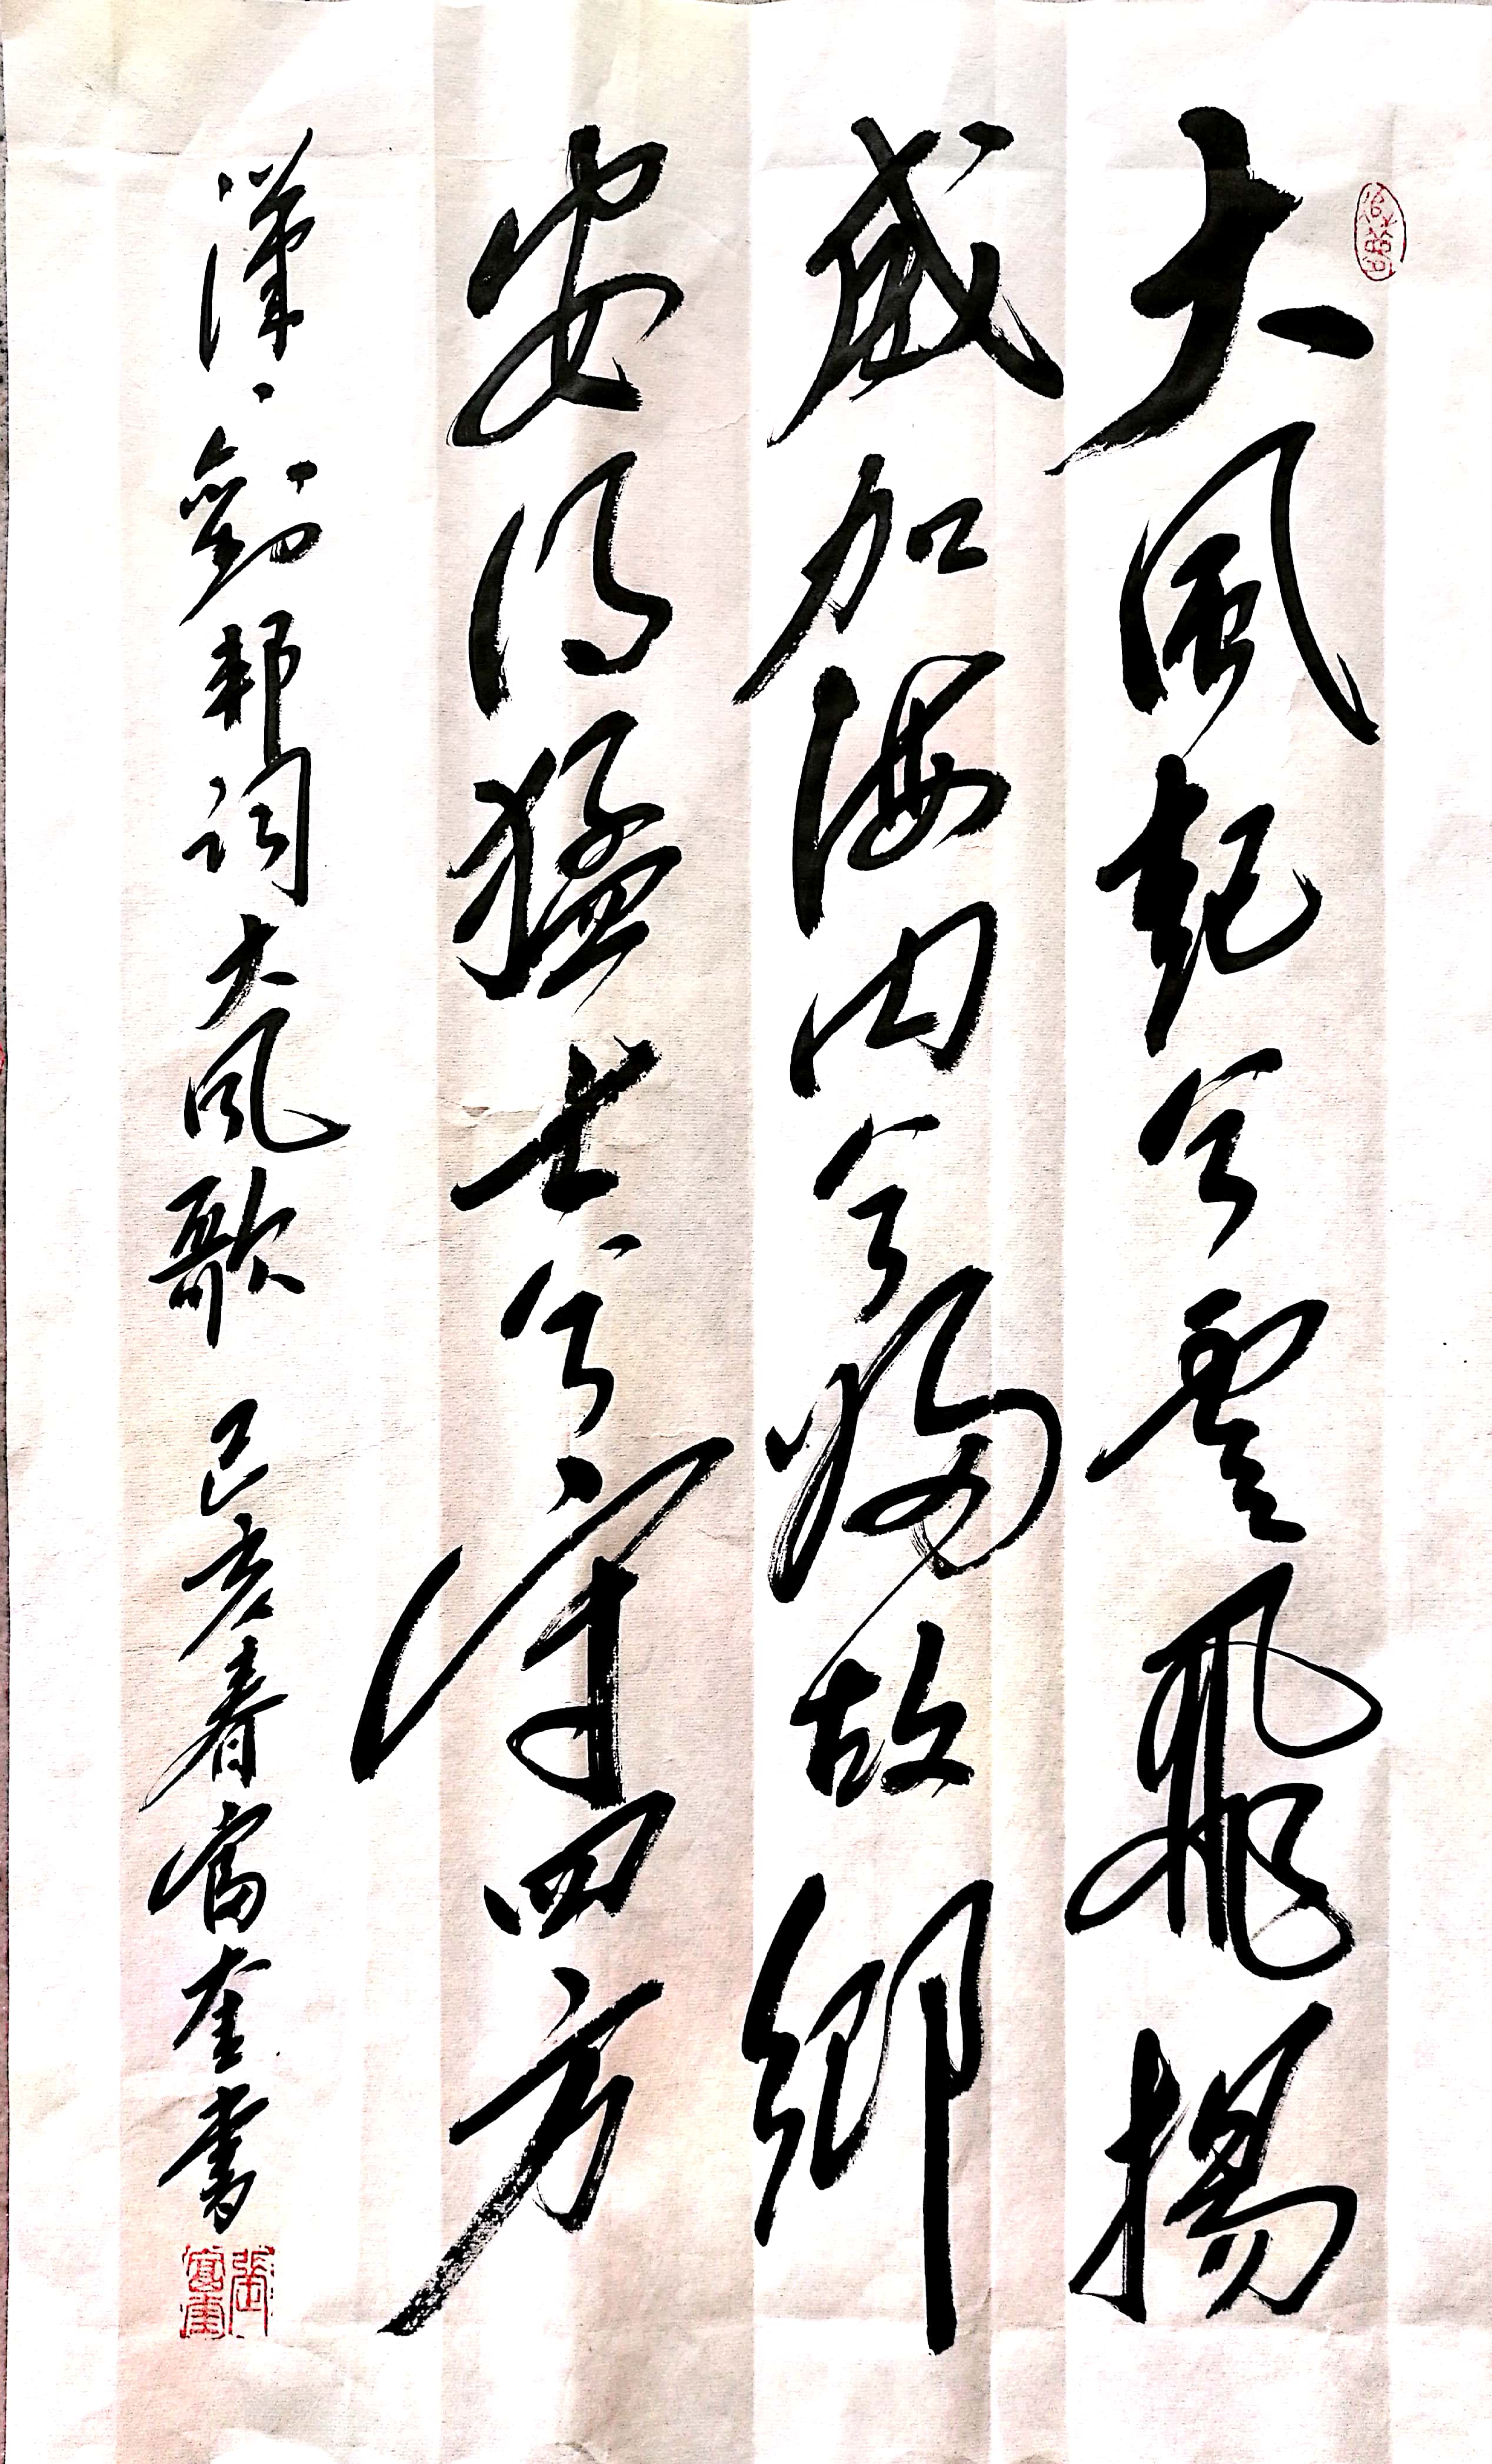 大風起兮雲飛揚
威加海内兮歸故鄉
安得猛士兮守四方
漢、劉邦詞大风歌 己亥春富奎書
張富奎